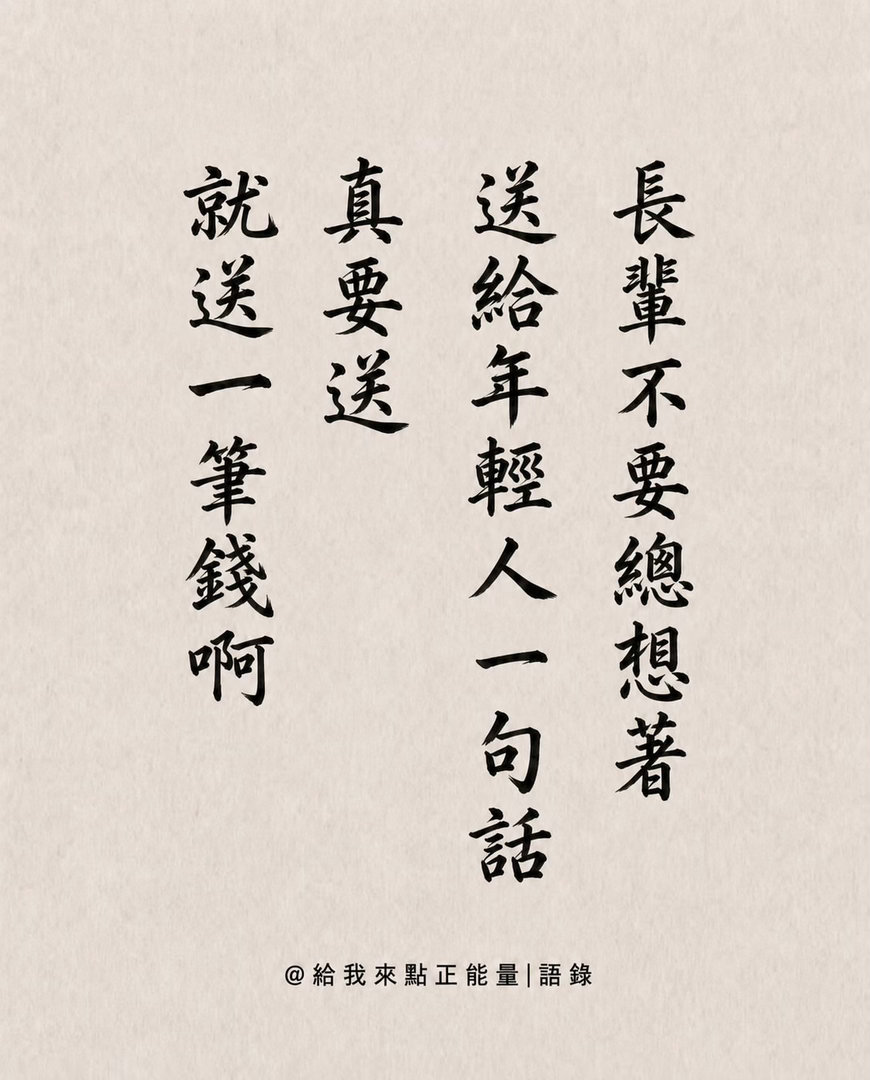 長輩不要總想著
送給年輕人一句話
真要送
就送一筆錢啊
@給我來點正能量|語錄